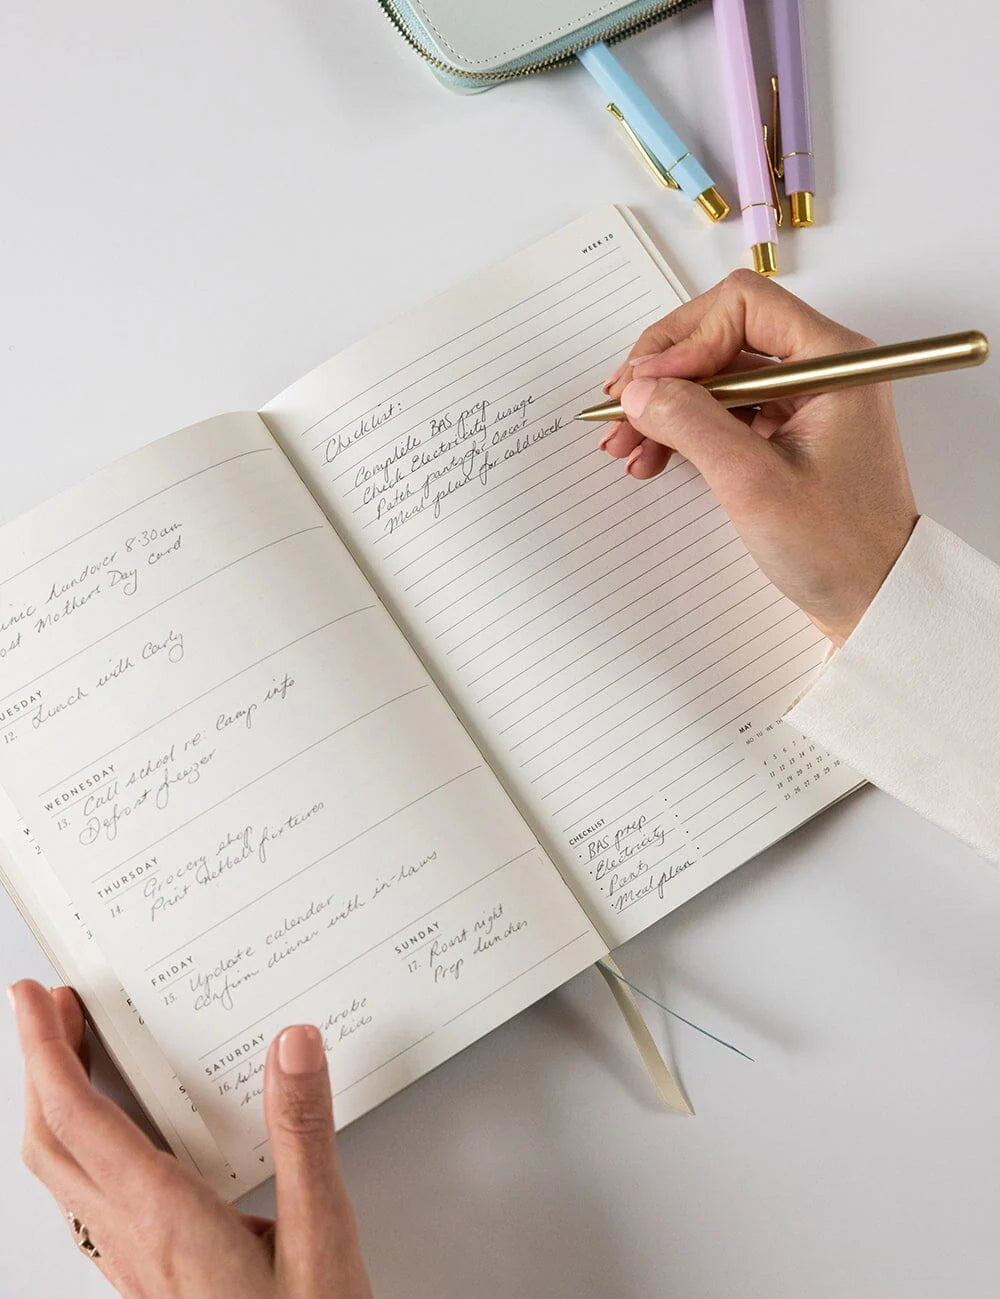 handover 8·30am
Mothers Day card
UESDAY
12. Lunch with Carly
WEDNESDAY
13. Call school re: Camp info
Defrost freezer
THURSDAY
14. Grocery shop
Print Netball fixtures
FRIDAY
15. Update calendar
Confirm dinner with in-laws
SATURDAY
16.
kids
SUNDAY
17. Roast night
Prep lunches
WEEK 20
Checklist:
Complete BAS prep
Check Electricity usage
Patch pants for Oscar
Meal plan for cold week
MAY
MO TU WE TH
4 5 6 7
11 12 13 14
18 19 20 21 22
25 26 27 28 29 30
CHECKLIST
· BAS prep
· Electricity
· Pants
· Meal plan